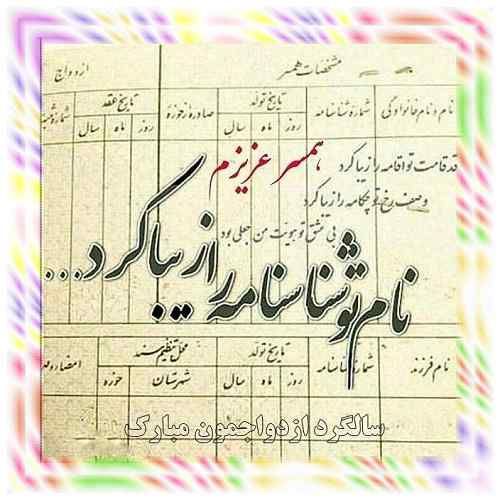 مشخصات همسر
ازدواج
نام و نام خانوادگی
شمارهٔ شناسنامه
تاریخ تولد
روز ماه سال
صادره از حوزه
تاریخ عقد
روز ماه سال
همسر عزیزم
قد قامت تو اقامه را زیبا کرد
وصف رخ تو چکامه را زیبا کرد
بی عشق تو هویت من جعلی بود
نام تو شناسنامه را زیبا کرد...
نام فرزند
شمارهٔ شناسنامه
تاریخ تولد
روز ماه سال
محل تنظیم سند
شهرستان حوزه
سالگرد ازدواجمون مبارک